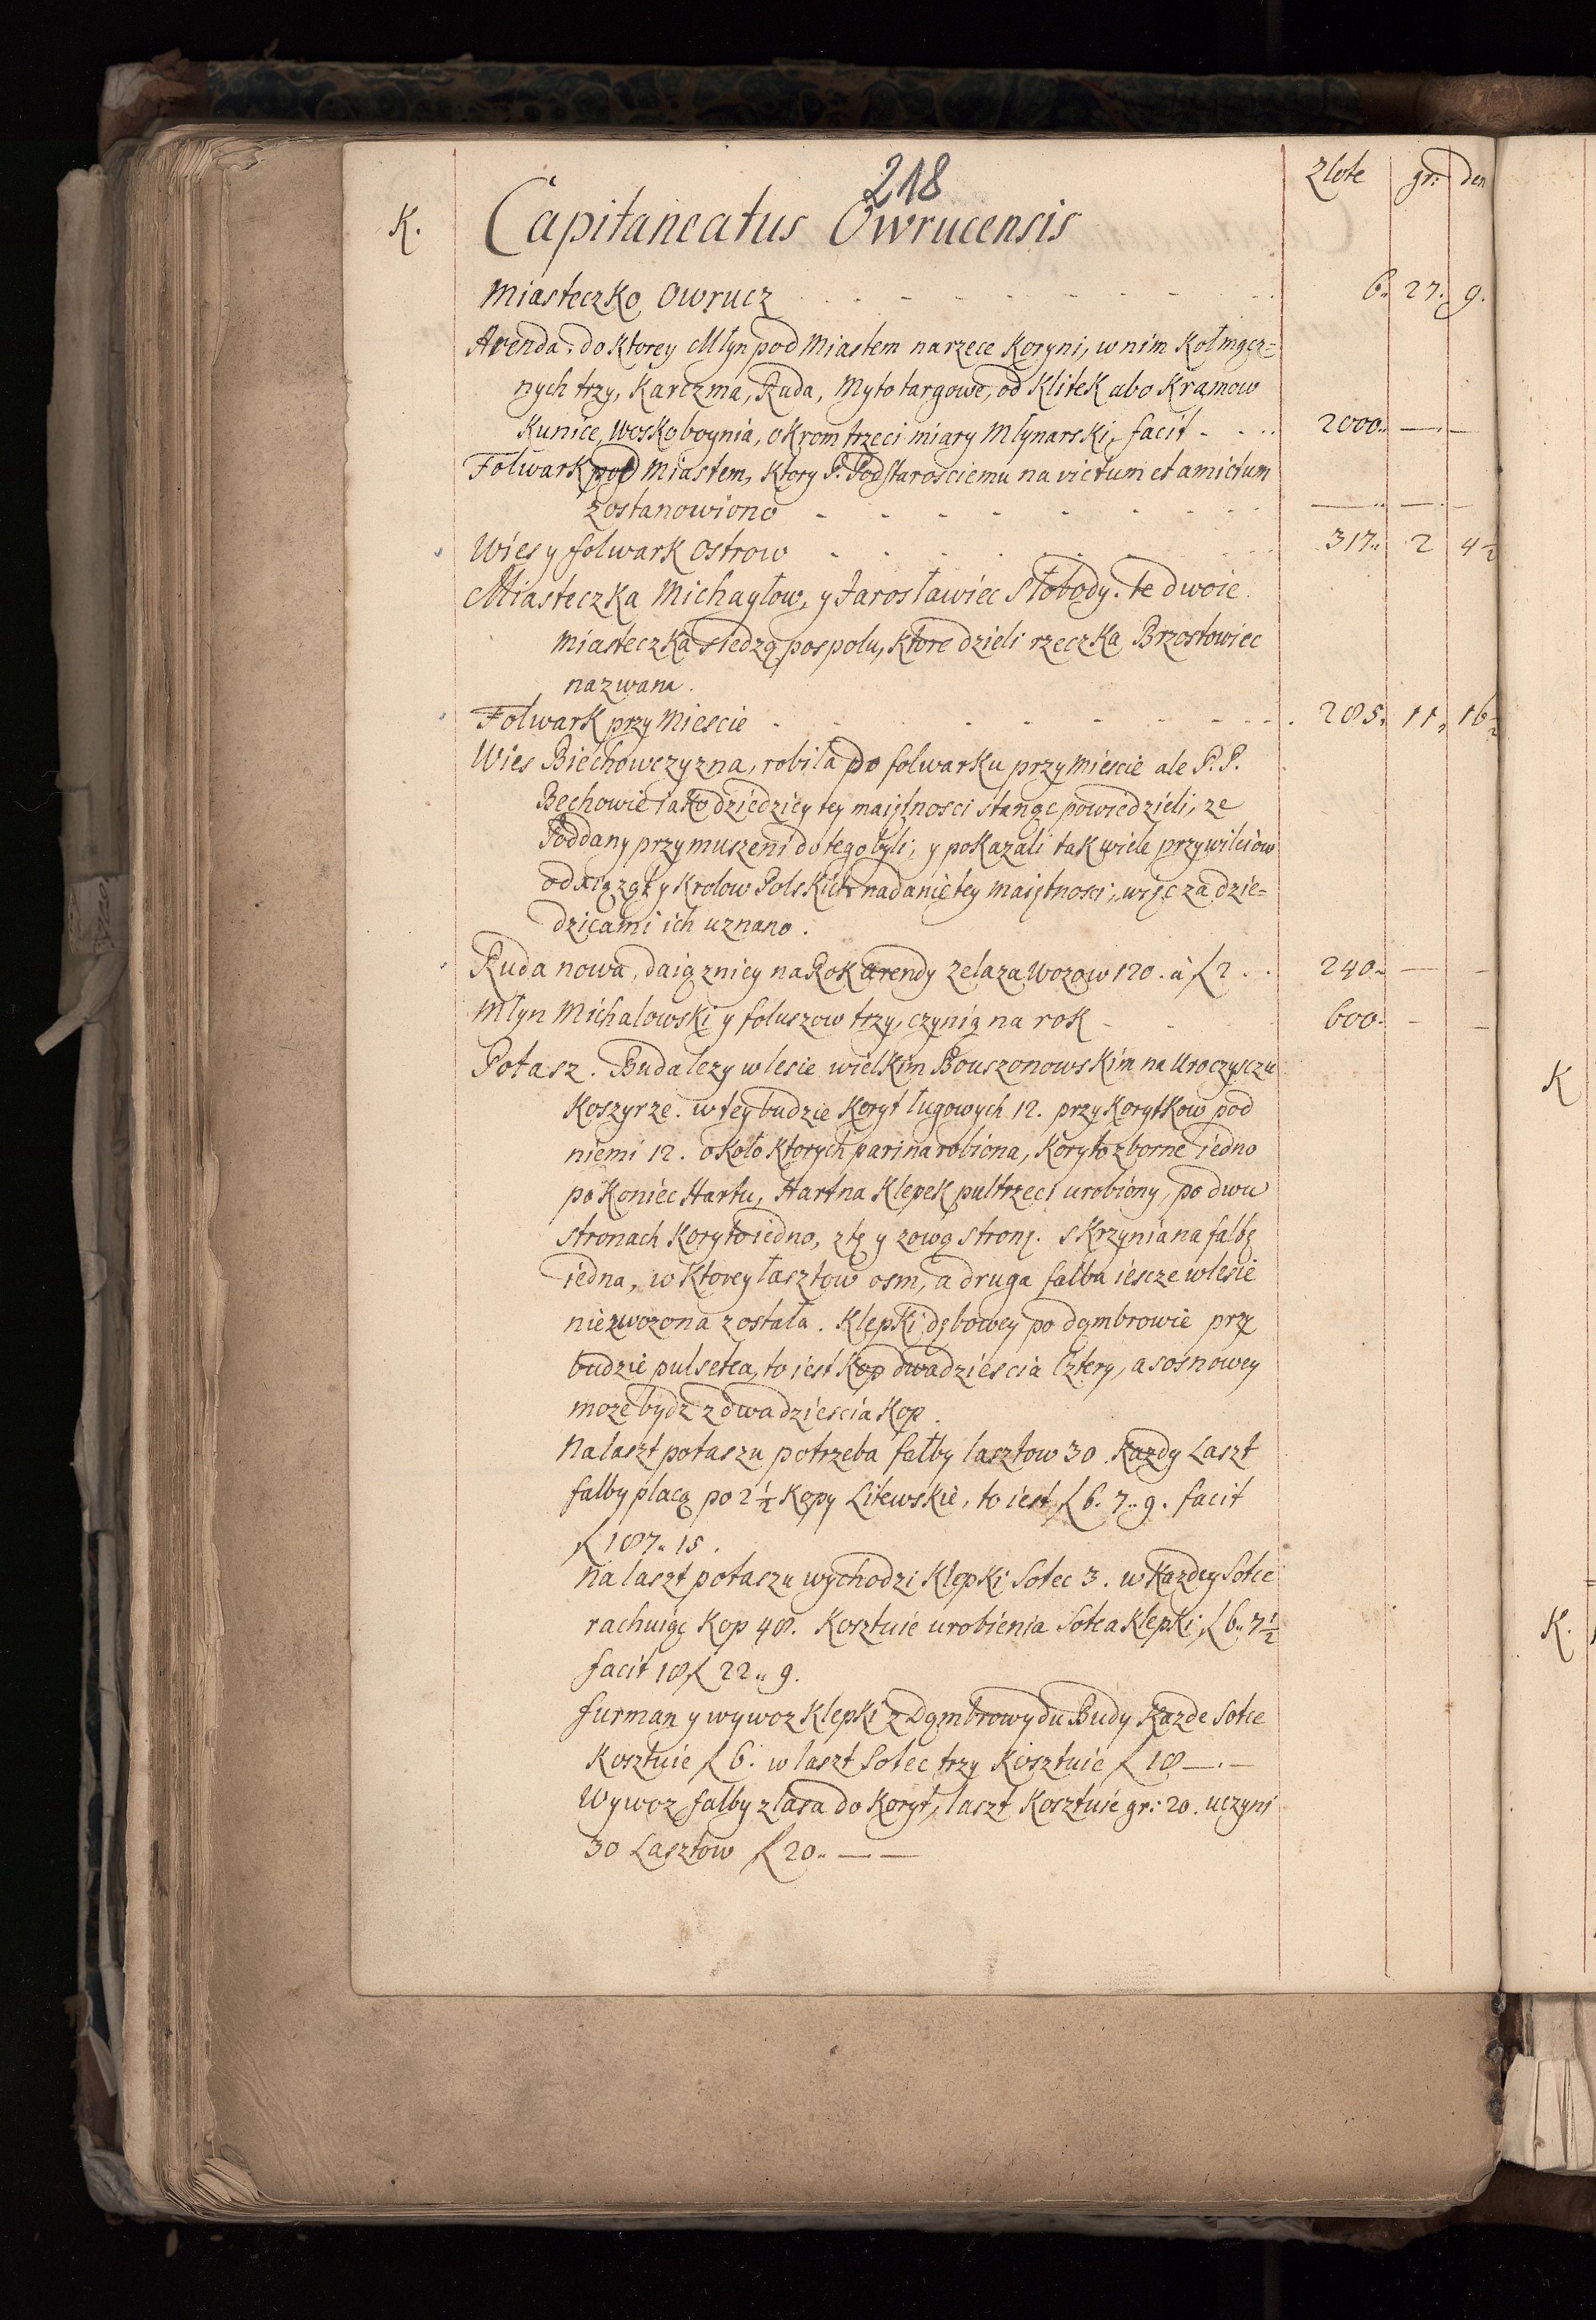 218
Zlote gr: den
K. Capitaneatus Owrucensis
Miasteczko Owrucz - - - - - - - - 6. 27. 9.
Arenda, do ktorey Młyn pod Miastem na rzece Koryni, w nim Koł mącz=
nych trzy, Karczma, Ruda, Myto targowe, od Klitek abo Kramow
Kunice, Woskoboynia, okrom trzeci miary Mlynarski, facit - - - 2000. — —
Folwark pod Miastem, ktory P. Podstarosciemu na victum et amictum
zostanowiono - - - - - - - — — —
Wies y folwark Ostrow - - - - - - 317. 2 4½
Miasteczka Michayłow, y Jarosławiec Słobody. te dwoie
miasteczka siedzą pospolu, ktore dzieli rzeczka Brzostowiec
nazwana.
Folwark przy Miescie - - - - - - - - 285. 11. 16½
Wies Biechowczyzna, robiła do folwarku przy mieście ale P.P.
Bechowie iako dziedzicy tey maiętnosci stanąc powiedzieli, ze
Poddany przymuszeni do tego byli, y pokazali tak wiele przywileiow
od xiąząt y Krolow Polskich nadanie tey maiętnosci, więc za dzie=
dzicami ich uznano.
Ruda nowa, daią z niey na Rok arendy zelaza Wozow 120. à f 2 . . 240. — —
Młyn Michalowski y foluszow trzy, czynią na rok - 600. - —
Potasz. Buda lezy w lesie wielkim Bouszonowskim na Uroczyszczu
Koszyrze. w tey budzie Koryt ługowych 12. przykorytkow pod
niemi 12. około ktorych parina robiona, Koryto zborne iedno
po koniec Hartu, Hart na Klepek pultrzeci urobiony, po dwu
stronach Koryto iedno, z tę y zową stronę. skrzynia na falbę
iedna, w ktorey łasztow osm, a druga falba iescze w lesie
niezwozona została. Klepki dębowey po dąmbrowie przy
budzie pulsetca, to iest Kop dwadziescia Cztery, a sosnowey
moze bydz z dwadziescia Kop.
Na laszt potaszu potrzeba fałby lasztow 30. Kazdy Laszt
falby płacą po 2½ Kopy Litewskie, to iest f 6. 7.. 9. facit
f 187.. 15.
Na laszt potaszu wychodzi Klepki Sotec 3. w Kazdey Sotce
rachuiąc Kop 48. Kosztuie urobienia Sotca Klepki f 6.. 7½
facit 18 f 22.. 9.
furman y wywoz Klepki z Dąmbrowy du Budy Kazde Sotce
Kosztuie f 6. w laszt Sotec trzy Kosztuie f 18 — . —
Wywoz falby z lasa do Koryt, laszt Kosztuie gr: 20. uczyni
30 Lasztow f 20.. — —
K
K.